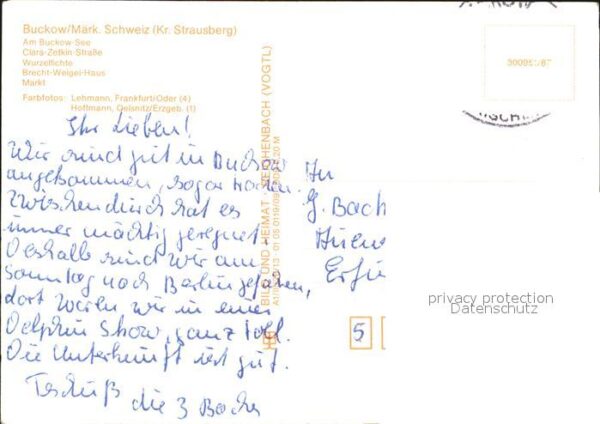 Buckow/Märk. Schweiz (Kr. Strausberg)
Am Buckow-See
Clara-Zetkin-Straße
Wurzelfichte
Brecht-Weigel-Haus
Markt
Farbfotos: Lehmann, Frankfurt/Oder (4)
Hoffmann, Oelsnitz/Erzgeb. (1)
Ihr Lieben!
Wir sind gut in Buckow
angekommen, sogar trocken.
Zwischendurch hat es
immer mächtig geregnet.
Deshalb sind wir am
Sonntag nach Berlin gefahren,
dort waren wir in einer
Delphin Show, ganz toll.
Die Unterkunft ist gut.
Tschüß
die 3 Bachs
BILD UND HEIMAT REICHENBACH (VOGTL)
An
G. Bach
5
privacy protection
Datenschutz